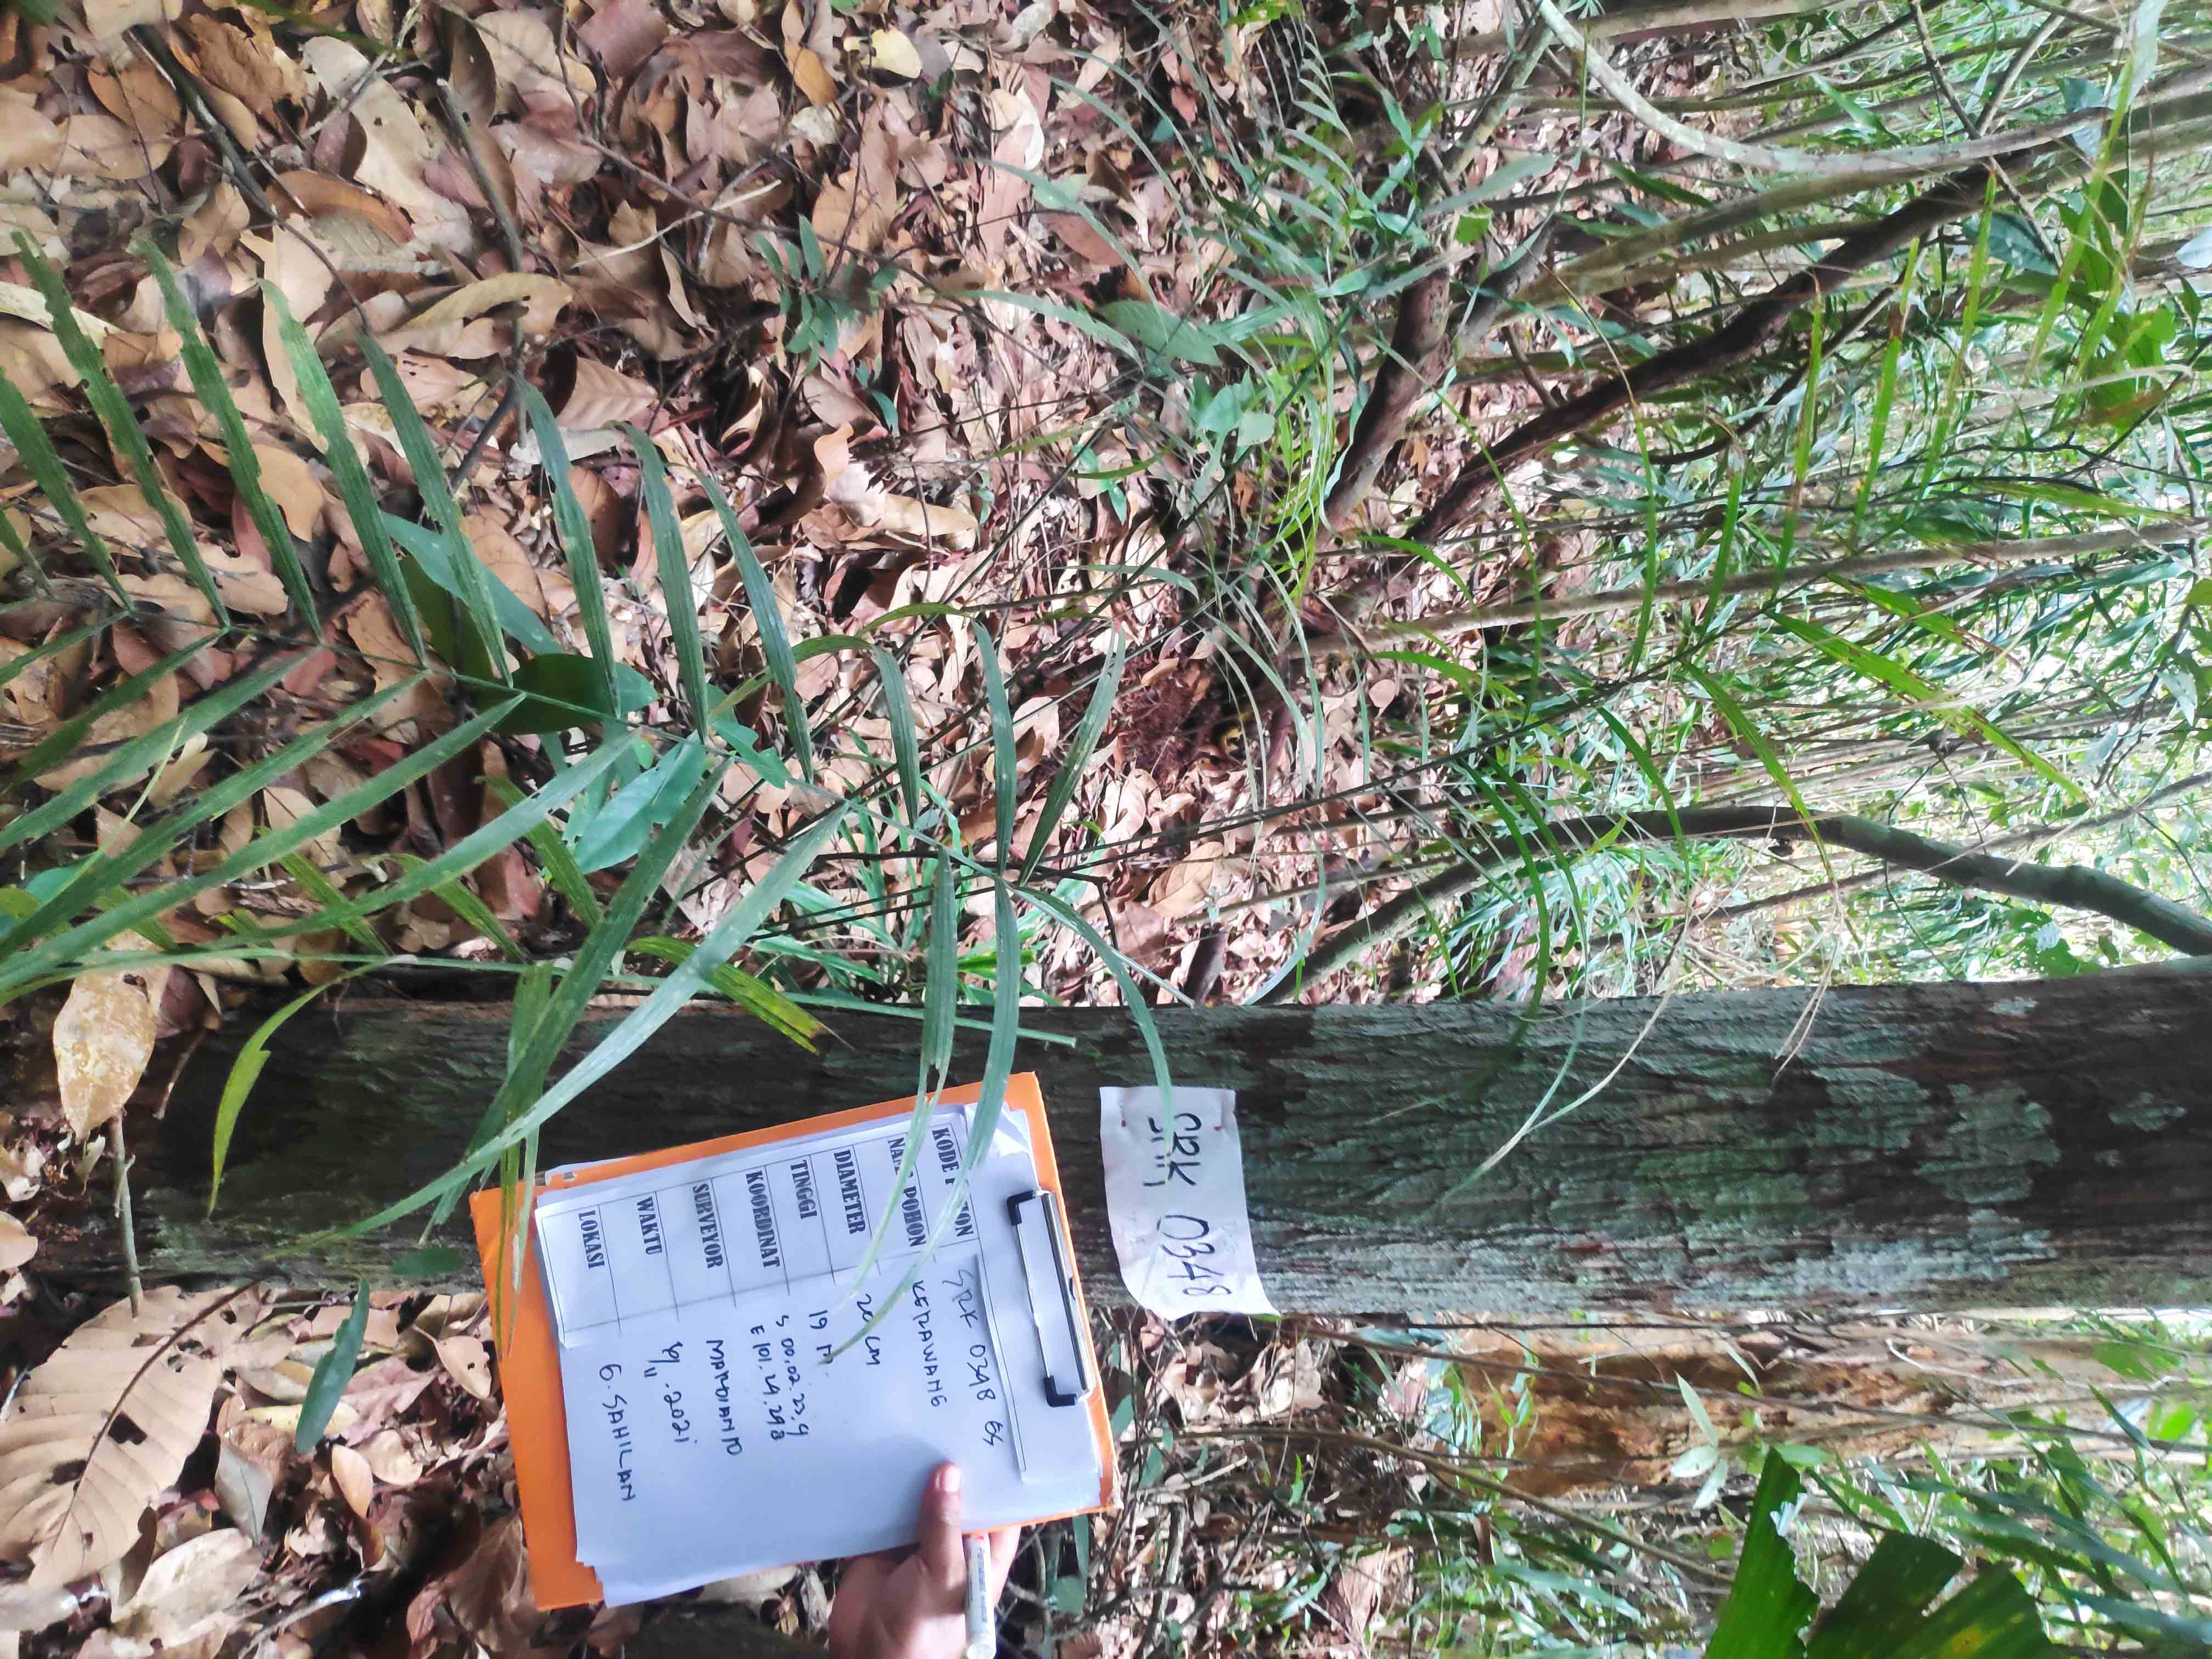 SRK 0348
KODE POHON SRK 0348 GS
NAMA POHON KEDAWANG
DIAMETER 20 CM
TINGGI 19 M
KOORDINAT S 00.02.23,9
E 101.24.29,8
SURVEYOR
WAKTU 2021
LOKASI G. SAHILAN